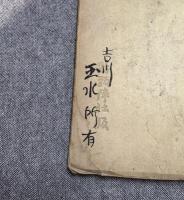 吉川
玉水所有